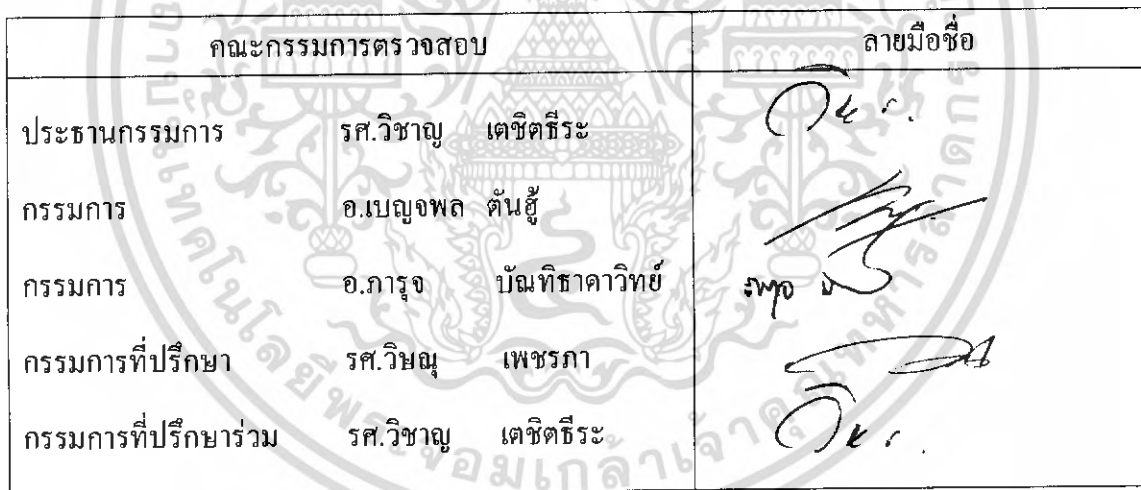 คณะกรรมการตรวจสอบ ลายมือชื่อ
ประธานกรรมการ รศ.วิชาญ เตชิตธีระ
กรรมการ อ.เบญจพล ตันฮู้
กรรมการ อ.ภารุจ บัณทิธาดาวิทย์
กรรมการที่ปรึกษา รศ.วิษณุ เพชรภา
กรรมการที่ปรึกษาร่วม รศ.วิชาญ เตชิตธีระ